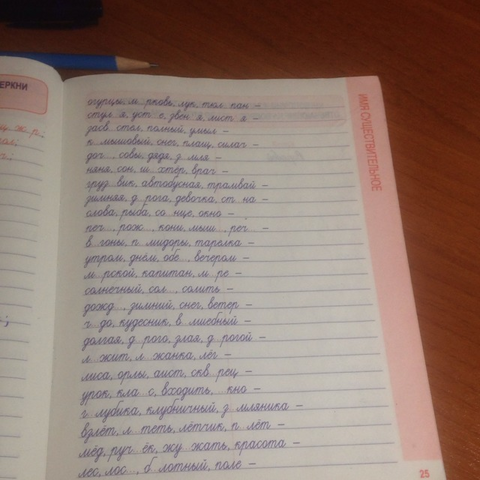 ЕРКНИ
ИМЯ СУЩЕСТВИТЕЛЬНОЕ
огурцы, м рковь, лук, тюл пан –
стул я, уст е, звен я, лист я –
засов, стол, полный, умыл –
п мышовый, снег, плащ, силач –
доч , совы, дядя, з мля –
няня, сон, ш хтёр, враг –
груз вик, автобусная, трамвай –
зимняя, д рога, девочка, ст на –
слова, рыба, со нце, окно –
печ , рож , кони, мыш , реч –
в гоны, п мидоры, тарелка –
утром, днём, обе , вечером –
м рской, капитан, м ре –
солнечный, сол , солить –
дожд , зимний, снег, ветер –
ч до, кудесник, в лшебный –
долгая, д рого, злая, д рогой –
л жит, л жанка, лёг –
лиса, орлы, аист, скв рец –
урок, кла с, входить, кно –
г лубика, клубничный, з мляника –
взлёт, л теть, лётчик, п лёт –
мёд, руч ёк, жу жать, красота –
лес, лос , б лотный, поле –
25